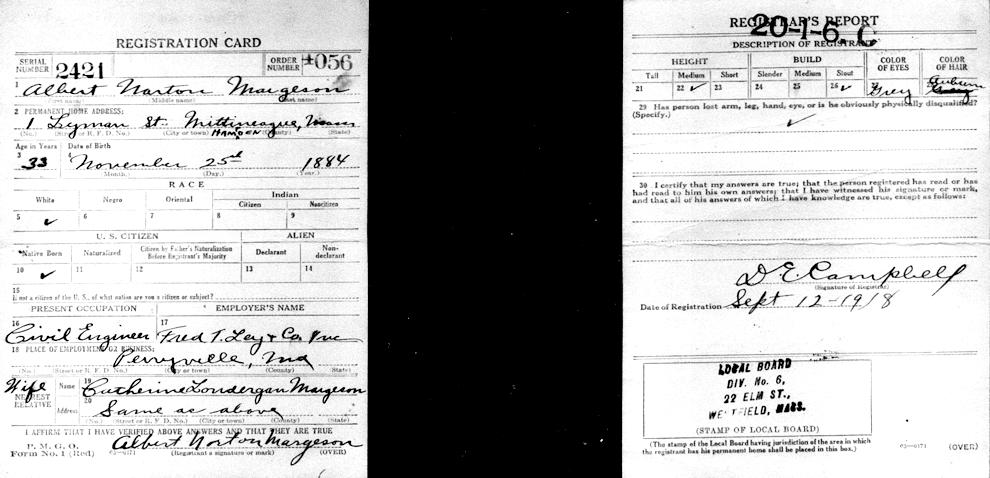 REGISTRATION CARD
SERIAL NUMBER 2421 ORDER NUMBER 4056
1 Albert Norton Margeson
(First name) (Middle name) (Last name)
2 PERMANENT HOME ADDRESS:
1 Lyman St. Mittineague, Mass
(No.) (Street or R. F. D. No.) (City or town) HAMDEN (County) (State)
Age in Years Date of Birth
3 33 4 November 25th 1884
(Month.) (Day.) (Year.)
RACE
White Negro Oriental Indian
Citizen Noncitizen
5 ✓ 6 7 8 9
U. S. CITIZEN ALIEN
Native Born Naturalized Citizen by Father's Naturalization Before Registrant's Majority Declarant Non-declarant
10 ✓ 11 12 13 14
15
If not a citizen of the U. S., of what nation are you a citizen or subject?
PRESENT OCCUPATION EMPLOYER'S NAME
16 Civil Engineer 17 Fred T. Ley & Co. Inc
18 PLACE OF EMPLOYMENT OR BUSINESS:
Perryville, Md
(No.) (Street or R. F. D. No.) (City or town) (County) (State)
Wife Name 19 Catherine Londergan Margeson
NEAREST RELATIVE Address 20 Same as above
(No.) (Street or R. F. D. No.) (City or town) (County) (State)
I AFFIRM THAT I HAVE VERIFIED ABOVE ANSWERS AND THAT THEY ARE TRUE
P. M. G. O. Albert Norton Margeson
Form No. 1 (Red) 03—6171 (Registrant's signature or mark) (OVER)
REGISTRAR'S REPORT
20-1-6. C
DESCRIPTION OF REGISTRANT
HEIGHT BUILD COLOR OF EYES COLOR OF HAIR
Tall Medium Short Slender Medium Stout
21 22 ✓ 23 24 25 26 ✓ 27 Grey Auburn
29 Has person lost arm, leg, hand, eye, or is he obviously physically disqualified?
(Specify.) ✓
30 I certify that my answers are true; that the person registered has read or has
had read to him his own answers; that I have witnessed his signature or mark,
and that all of his answers of which I have knowledge are true, except as follows:
D. E. Campbell
(Signature of Registrar)
Date of Registration Sept 12-1918
LOCAL BOARD
DIV. No. 6,
22 ELM ST.,
WESTFIELD, MASS.
(STAMP OF LOCAL BOARD)
(The stamp of the Local Board having jurisdiction of the area in which
the registrant has his permanent home shall be placed in this box.) 03—6171 (OVER)